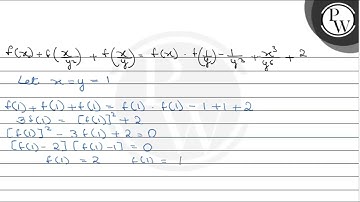 PW
f(x)+f(x/y²) + f(x/y) = f(x) · f(1/y) - 1/y³ + x³/y⁶ + 2
Let x=y=1
f(1) + f(1) + f(1) = f(1) · f(1) - 1 + 1 + 2
3f(1) = [f(1)]² + 2
[f(1)]² - 3f(1) + 2 = 0
[f(1) - 2] [f(1) - 1] = 0
f(1) = 2 f(1) = 1